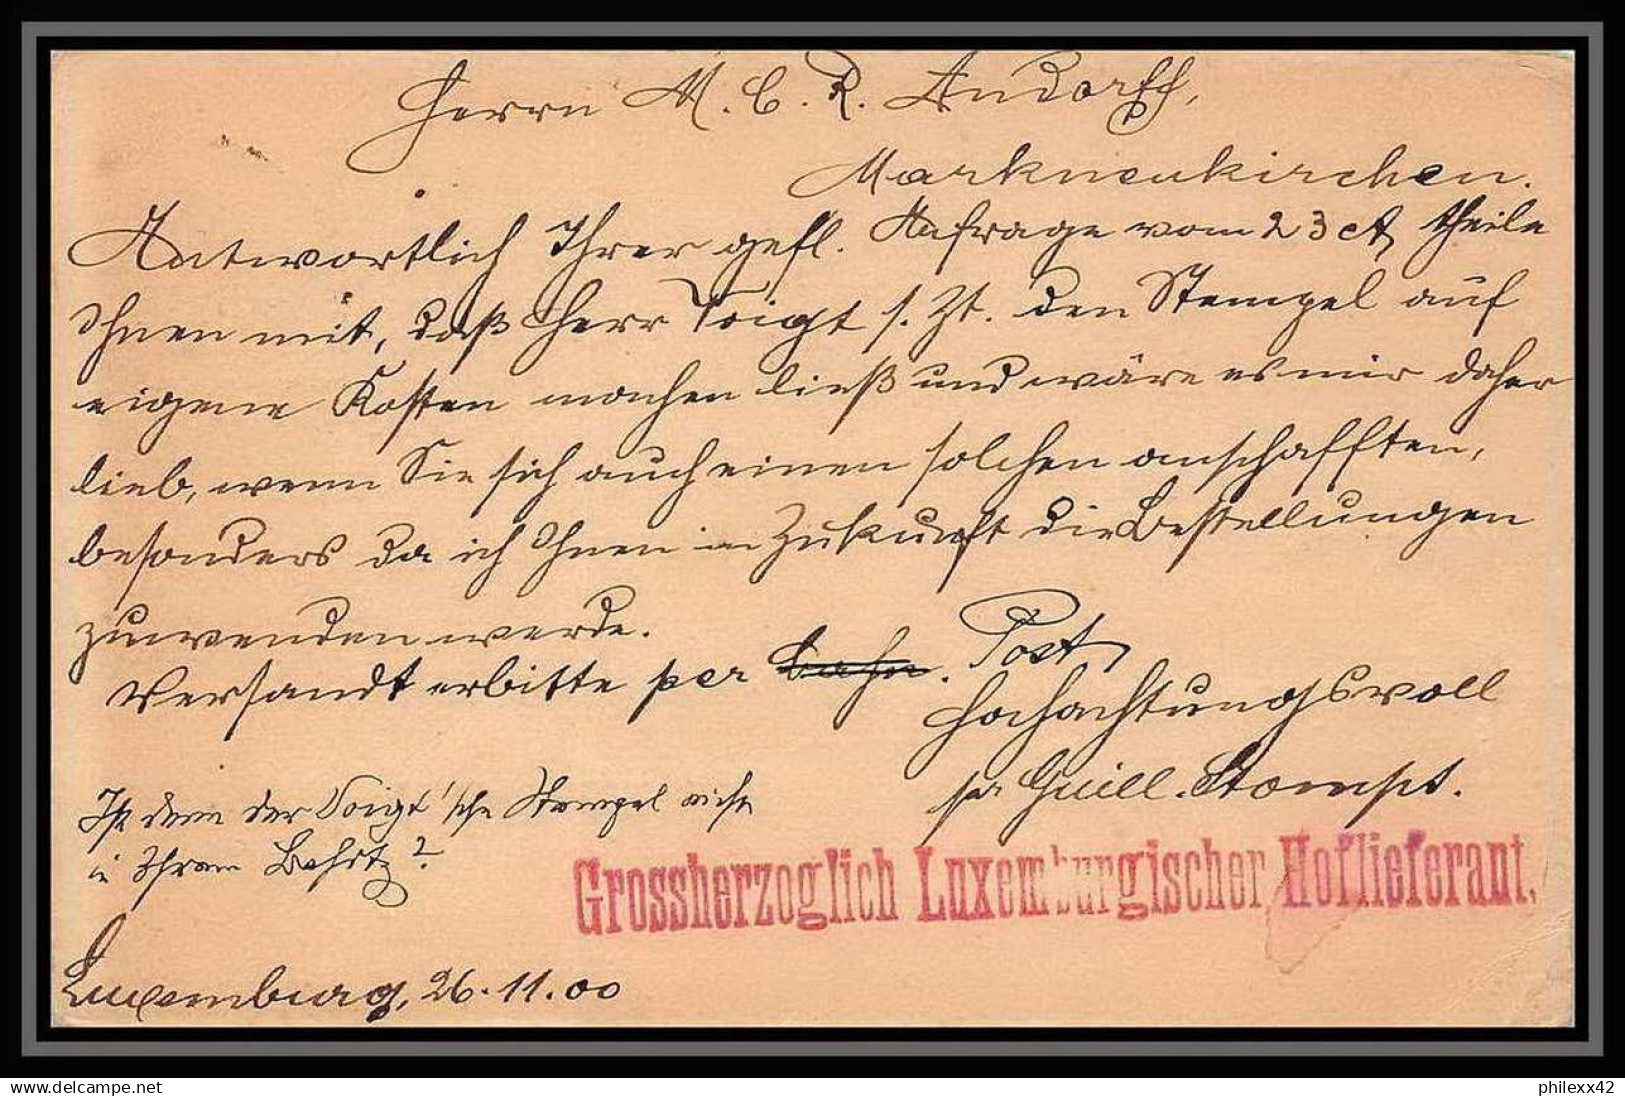 Herrn M. C. R. Andorff,
Markneukirchen.
Antwortlich Ihrer gefl. Anfrage vom 23 ct, theile
Ihnen mit, daß Herr Voigt s. Zt. den Stempel auf
eigene Kosten machen ließ und wäre es mir daher
lieb, wenn Sie sich auch einen solchen anschafften,
besonders da ich Ihnen in Zukunft die Bestellungen
zuwenden werde.
Versandt erbitte per Bahn. Post,
Hochachtungsvoll
pr Guill. Stomps.
Ist denn der Voigt'sche Stempel nicht
in Ihrem Besitz?
Grossherzoglich Luxemburgischer Hoflieferant.
Luxemburg, 26.11.00
philexx42.delcampe.net
philexx42